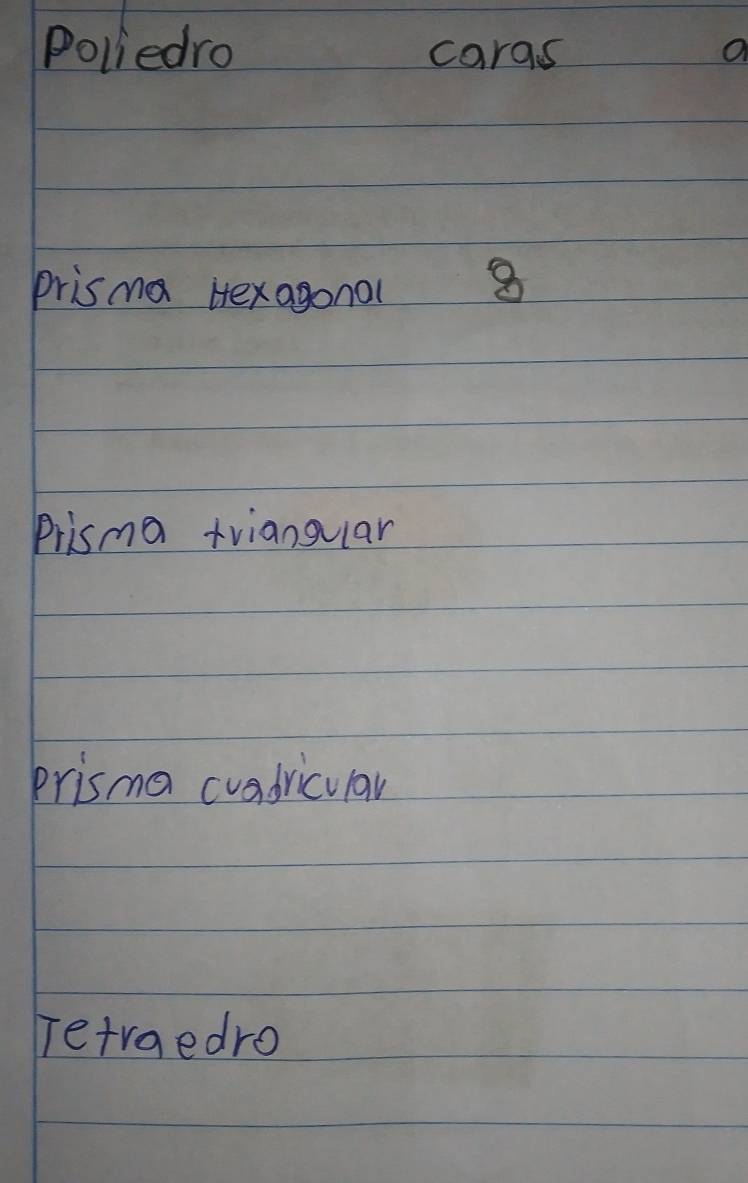 Poliedro caras a
Prisma Hexagonal 8
Prisma triangular
Prisma cuadricular
Tetraedro